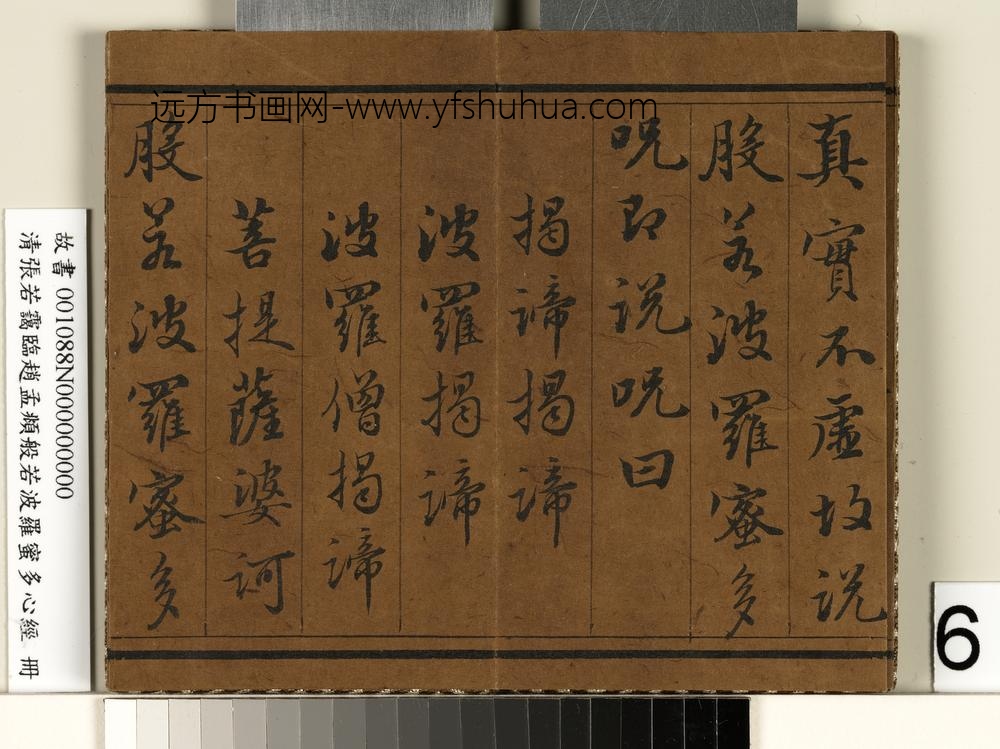 远方书画网-www.yfshuhua.com
真實不虛故說
般若波羅蜜多
呪即說呪曰
揭諦揭諦
波羅揭諦
波羅僧揭諦
菩提薩婆訶
般若波羅蜜多
故書 001088N000000000
清張若靄臨趙孟頫般若波羅蜜多心經 冊
6